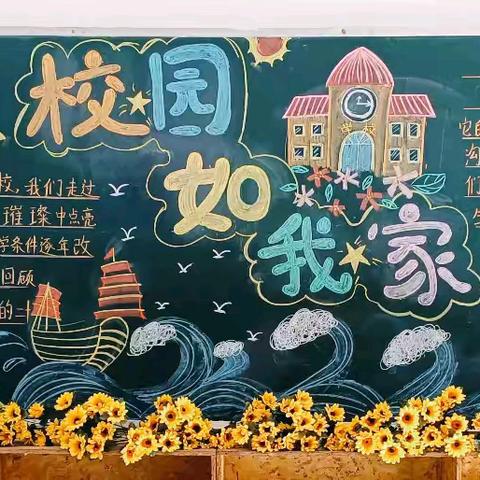 校园
如
我家
学校
校,我们走过
璀璨中点亮
学条件逐年改
回顾
的二十